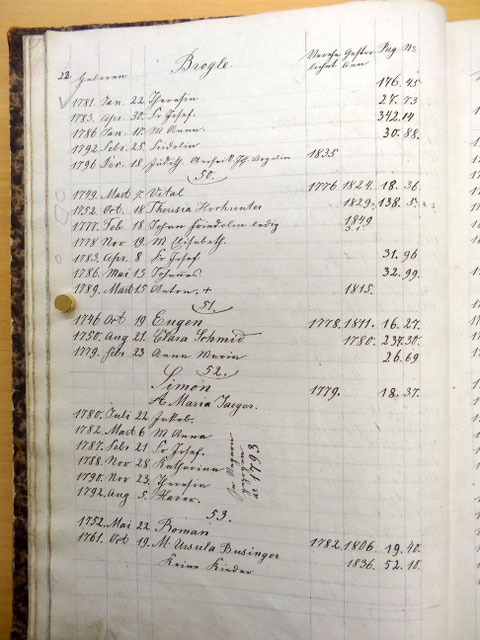 22. Brogle
Geboren Verehe Gestor Pag. No
lichet ben
176. 45
1781. Jan. 22. Theresia 27. 73
1783. Apr. 30. Fr. Josef. 342. 14
1786 Jan. 17. M Anna 30. 88.
1792 Febr. 25. Fridolin
1796 Dez. 18. Judith 1835
50.
1749. Mart 7. Vital 1776 1824. 18. 36.
1752. Oct. 18 Theresia Hochreuter 1829. 138. 5.
1777. Feb 18 Johan Fridolin ledig 1849
1778 Nov 19 M Elisabeth.
1783. Apr. 8 Fr Josef 31. 96
1786. Mai 13 Johannes 32. 99.
1789. Mart 15 Anton. + 1815.
51.
1746 Oct 19 Eugen 1778. 1811. 16. 27.
1750. Aug 21. Clara Schmid 1780. 237. 30.
1779. Febr. 23 Anna Maria 26. 69
52.
Simon 1779. 18. 37.
A Maria Jaeger.
1780. Juli 22 Jakob.
1782. Mart 6 M Anna
1787. Feb 21 Fr Josef.
1788. Nov 28 Katharina
1790. Nov 23. Theresia
1792. Aug 5. Xaver.
In Ungarn
gezogen
ao 1793
53.
1752. Mai 22 Roman
1761. Oct 19. M. Ursula Businger 1782. 1806. 19. 40.
Keine Kinder 1836. 52. 18.